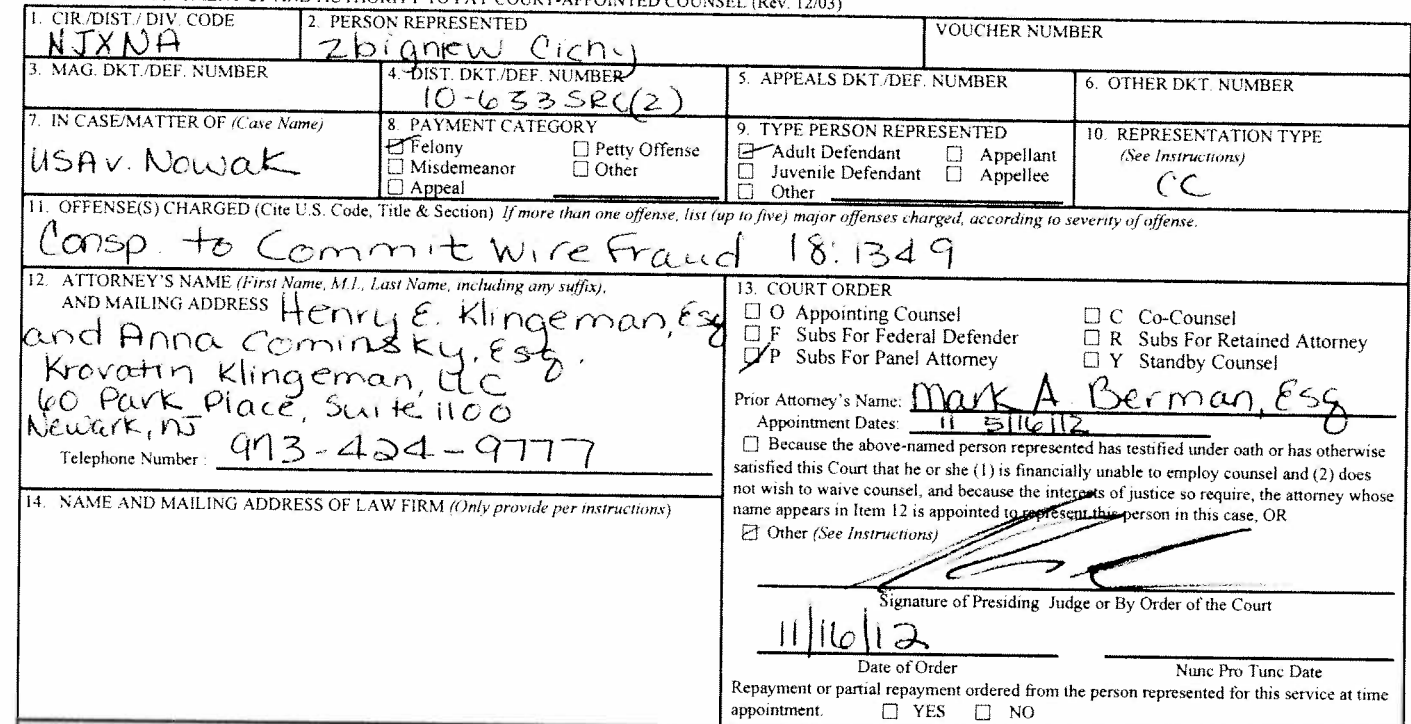 APPOINTMENT OF AND AUTHORITY TO PAY COURT-APPOINTED COUNSEL (Rev. 12/03)
1. CIR./DIST./ DIV. CODE
NJXNA
2. PERSON REPRESENTED
Zbigniew Cichy
VOUCHER NUMBER
3. MAG. DKT./DEF. NUMBER
4. DIST. DKT./DEF. NUMBER
10-633 SRC(2)
5. APPEALS DKT./DEF. NUMBER
6. OTHER DKT. NUMBER
7. IN CASE/MATTER OF (Case Name)
USA v. Nowak
8. PAYMENT CATEGORY
☑ Felony ☐ Petty Offense
☐ Misdemeanor ☐ Other
☐ Appeal
9. TYPE PERSON REPRESENTED
☑ Adult Defendant ☐ Appellant
☐ Juvenile Defendant ☐ Appellee
☐ Other
10. REPRESENTATION TYPE
(See Instructions)
CC
11. OFFENSE(S) CHARGED (Cite U.S. Code, Title & Section) If more than one offense, list (up to five) major offenses charged, according to severity of offense.
Consp. to Commit Wire Fraud 18:1349
12. ATTORNEY'S NAME (First Name, M.I., Last Name, including any suffix),
AND MAILING ADDRESS Henry E. Klingeman, Esq
and Anna Cominsky, Esq.
Krovatin Klingeman, LLC
60 Park Place, Suite 1100
Newark, NJ
Telephone Number : 973-424-9777
13. COURT ORDER
☐ O Appointing Counsel ☐ C Co-Counsel
☐ F Subs For Federal Defender ☐ R Subs For Retained Attorney
☑ P Subs For Panel Attorney ☐ Y Standby Counsel
Prior Attorney's Name: Mark A. Berman, Esq
Appointment Dates: 5/16/12
☐ Because the above-named person represented has testified under oath or has otherwise
satisfied this Court that he or she (1) is financially unable to employ counsel and (2) does
not wish to waive counsel, and because the interests of justice so require, the attorney whose
name appears in Item 12 is appointed to represent this person in this case, OR
☑ Other (See Instructions)
Signature of Presiding Judge or By Order of the Court
11/16/12
Date of Order Nunc Pro Tunc Date
Repayment or partial repayment ordered from the person represented for this service at time
appointment. ☐ YES ☐ NO
14. NAME AND MAILING ADDRESS OF LAW FIRM (Only provide per instructions)